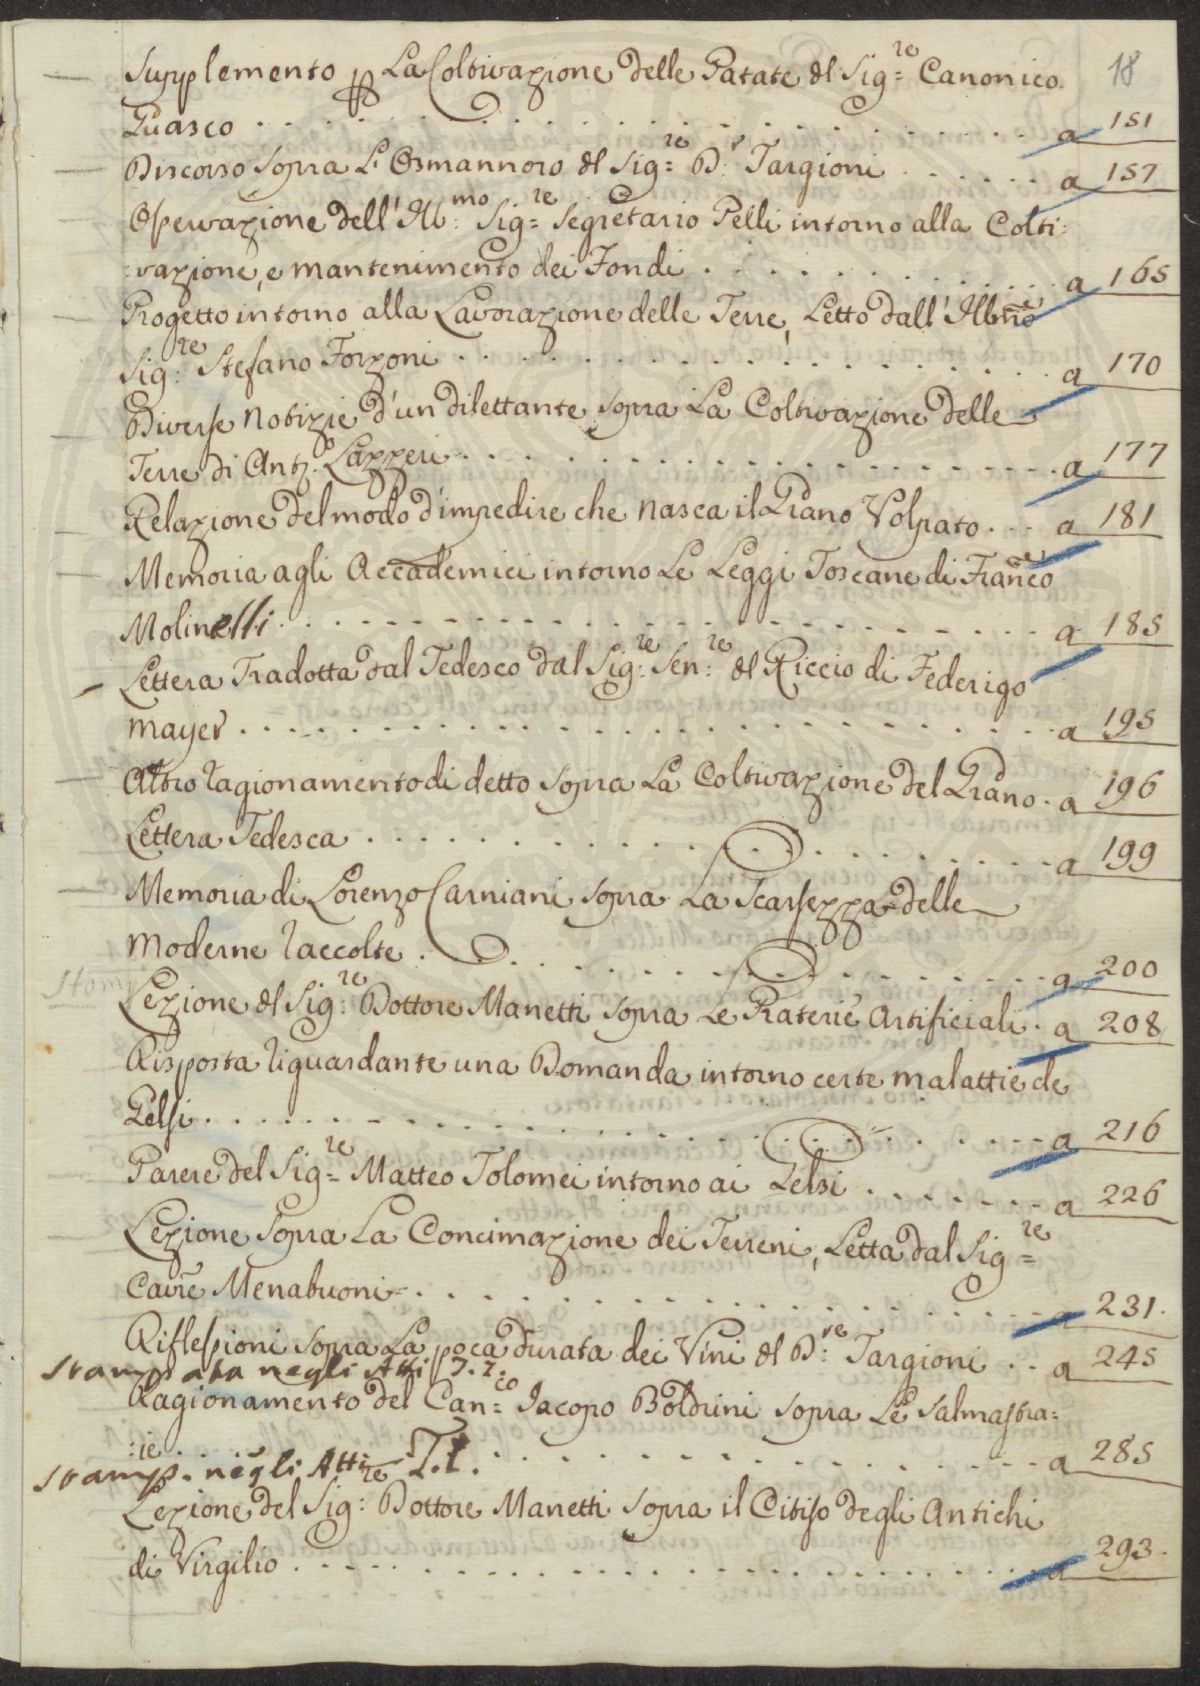 18
Supplemento p La Coltivazione delle Patate del Sig:re Canonico
Guasco . . . . . . . . . . . . . . . . . . a 151
Discorso sopra L'Osmannoro del Sig:re D:r Targioni . . . . . . a 157
Osservazione dell'Ill:mo Sig:re Segretario Pelli intorno alla Colti:
:vazione, e mantenimento dei Fondi . . . . . . . . . . a 165
Progetto intorno alla Lavorazione delle Terre, Letto dall'Illmo
Sig:re Stefano Forzoni . . . . . . . . . . . . . . . a 170
Diverse Notizie d'un dilettante sopra La Coltivazione delle
Terre di Anto Lapperi . . . . . . . . . . . . . . . . a 177
Relazione del modo d'impedire che nasca il Grano Volpato . . . a 181
Memoria agli Accademici intorno Le Leggi Toscane di Franco
Molinelli . . . . . . . . . . . . . . . . . . . a 185
Lettera Tradotta dal Tedesco dal Sig:re Sen:re del Riccio di Federigo
Mayer . . . . . . . . . . . . . . . . . . . . a 195
Altro ragionamento di detto sopra La Coltivazione del Grano . a 196
Lettera Tedesca . . . . . . . . . . . . . . . . . a 199
Memoria di Lorenzo Carniani sopra La Scarsezza delle
Moderne raccolte . . . . . . . . . . . . . . . a 200
Lezione del Sig:re Dottore Manetti sopra Le Praterie Artificiali . a 208
Risposta riguardante una Domanda intorno certe malattie de
Gelsi . . . . . . . . . . . . . . . . . . . . a 216
Parere del Sig:re Matteo Tolomei intorno ai Gelsi . . . . . . . a 226
Lezione sopra La Concimazione dei Terreni, Letta dal Sig:re
Cavre Menabuoni . . . . . . . . . . . . . . . . a 231.
Riflessioni sopra La poca durata dei Vini del D:re Targioni . . a 245
Stampata negli Atti T. I.
Ragionamento del Can:co Jacopo Boldrini sopra Le Salmastra:
:ie . . . . . . . . . . . . . . . . . . . . . a 285
Stamp. negli Atti T. I.
Lezione del Sig:re Dottore Manetti sopra il Citiso degli Antichi
di Virgilio . . . . . . . . . . . . . . . . . . a 293.